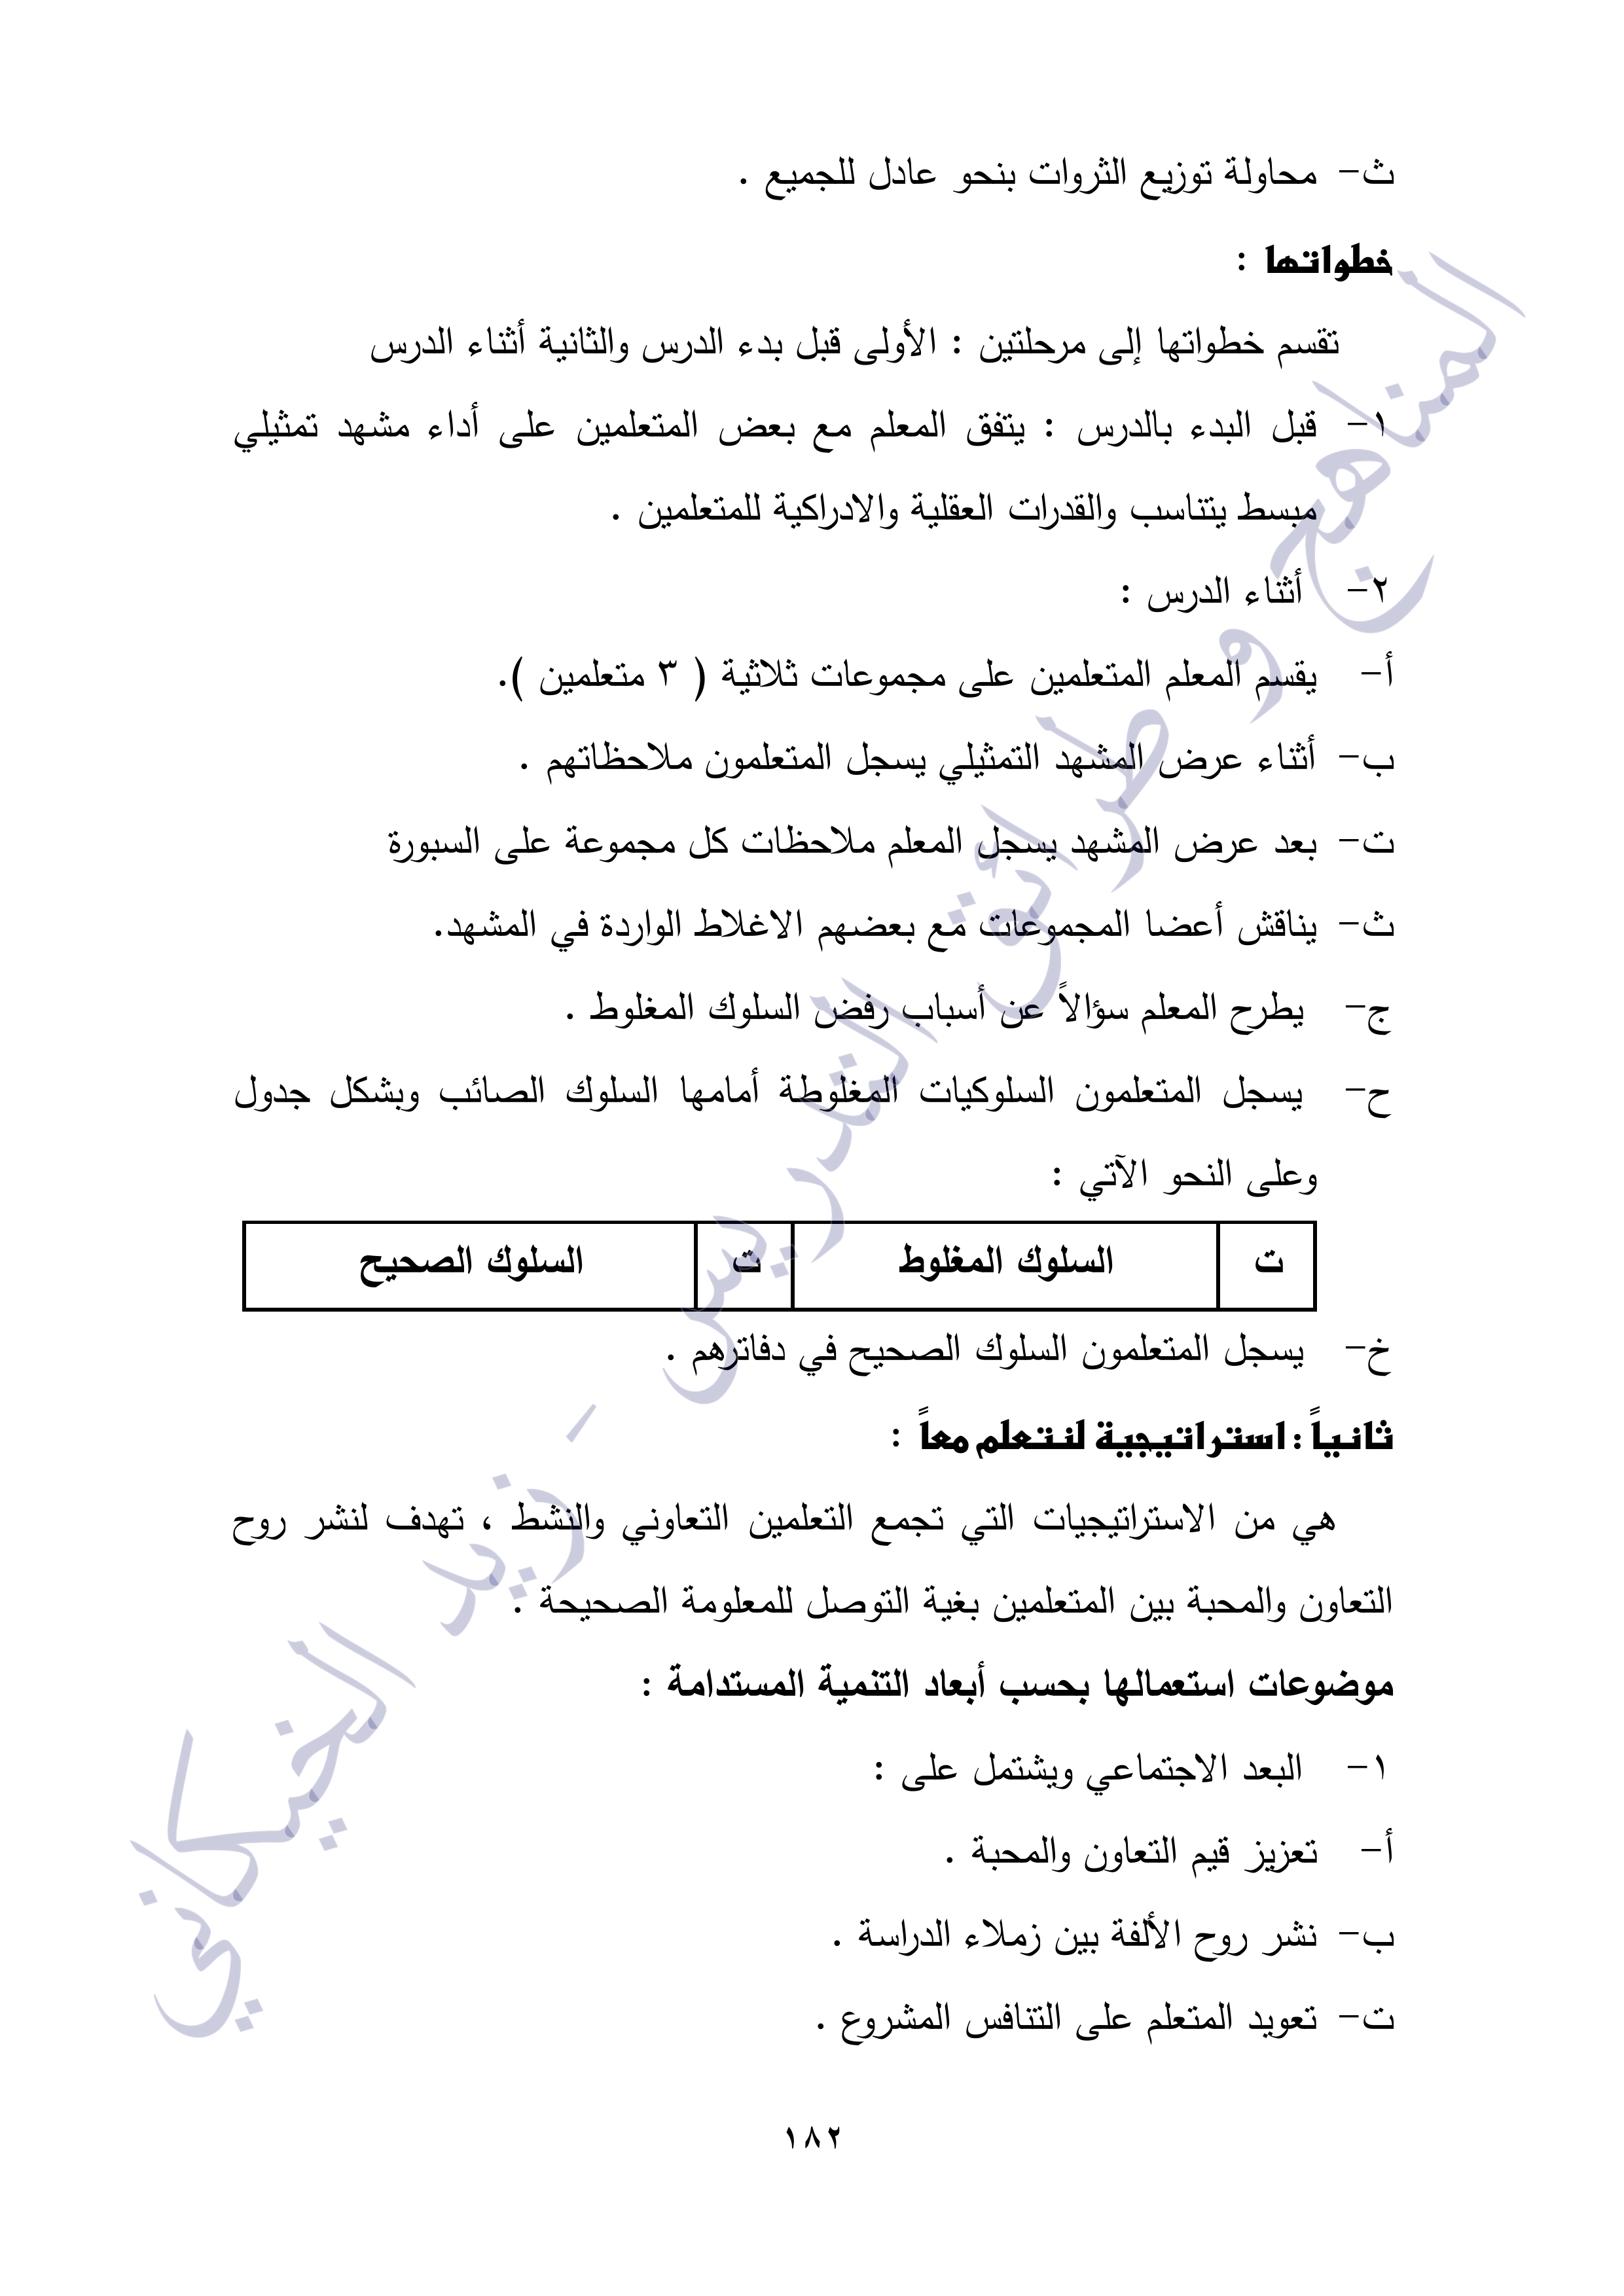 ث- محاولة توزيع الثروات بنحو عادل للجميع .
خطواتها :
تقسم خطواتها إلى مرحلتين : الأولى قبل بدء الدرس والثانية أثناء الدرس
١- قبل البدء بالدرس : يتفق المعلم مع بعض المتعلمين على أداء مشهد تمثيلي
مبسط يتناسب والقدرات العقلية والادراكية للمتعلمين .
٢- أثناء الدرس :
أ- يقسم المعلم المتعلمين على مجموعات ثلاثية ( ٣ متعلمين ).
ب- أثناء عرض المشهد التمثيلي يسجل المتعلمون ملاحظاتهم .
ت- بعد عرض المشهد يسجل المعلم ملاحظات كل مجموعة على السبورة
ث- يناقش أعضا المجموعات مع بعضهم الاغلاط الواردة في المشهد.
ج- يطرح المعلم سؤالاً عن أسباب رفض السلوك المغلوط .
ح- يسجل المتعلمون السلوكيات المغلوطة أمامها السلوك الصائب وبشكل جدول
وعلى النحو الآتي :
ت السلوك المغلوط ت السلوك الصحيح
خ- يسجل المتعلمون السلوك الصحيح في دفاترهم .
ثانياً : استراتيجية لنتعلم معاً :
هي من الاستراتيجيات التي تجمع التعلمين التعاوني والنشط ، تهدف لنشر روح
التعاون والمحبة بين المتعلمين بغية التوصل للمعلومة الصحيحة .
موضوعات استعمالها بحسب أبعاد التنمية المستدامة :
١- البعد الاجتماعي ويشتمل على :
أ- تعزيز قيم التعاون والمحبة .
ب- نشر روح الألفة بين زملاء الدراسة .
ت- تعويد المتعلم على التنافس المشروع .
١٨٢
المناهج و طرائق التدريس - زيد الخيكاني